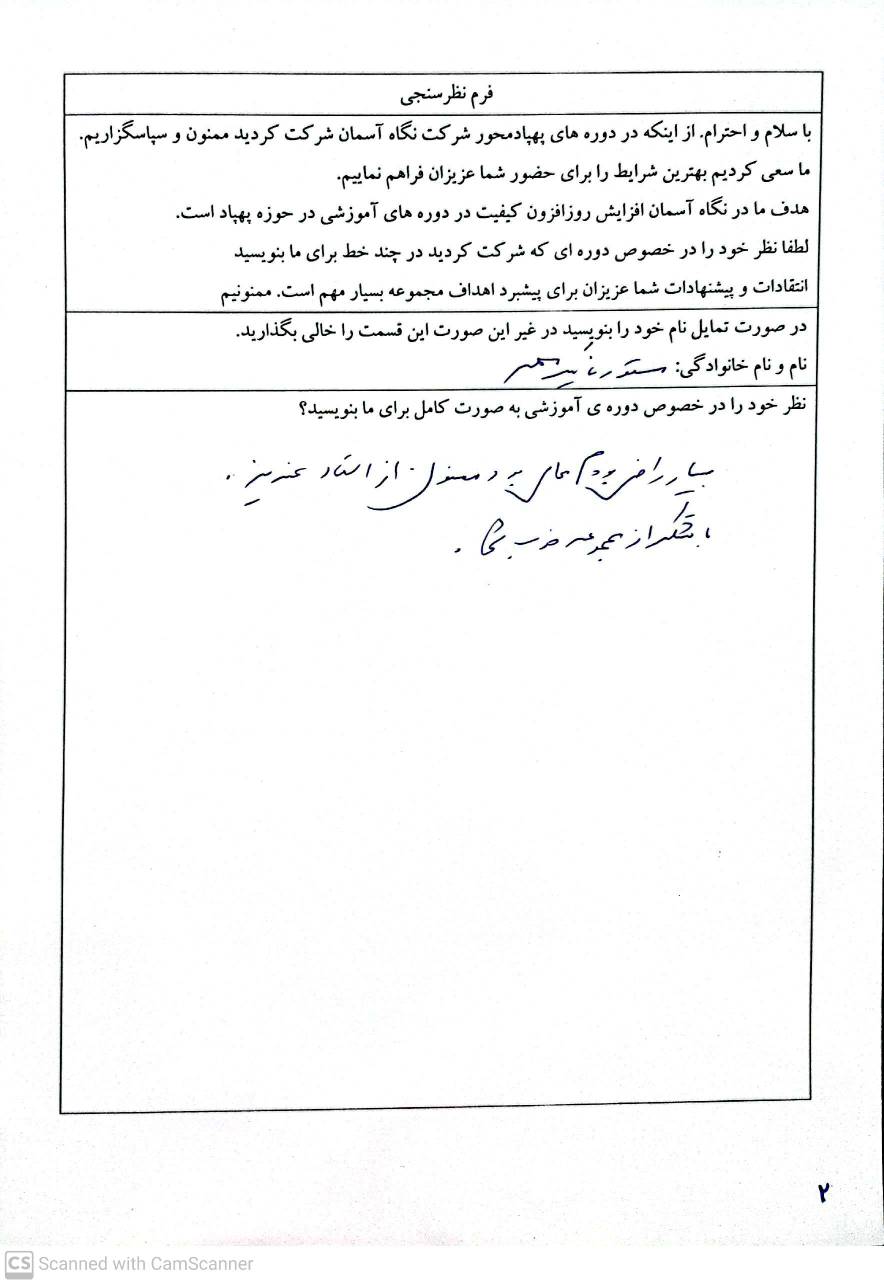 فرم نظرسنجی
با سلام و احترام. از اینکه در دوره های پهپادمحور شرکت نگاه آسمان شرکت کردید ممنون و سپاسگزاریم.
ما سعی کردیم بهترین شرایط را برای حضور شما عزیزان فراهم نماییم.
هدف ما در نگاه آسمان افزایش روزافزون کیفیت در دوره های آموزشی در حوزه پهپاد است.
لطفا نظر خود را در خصوص دوره ای که شرکت کردید در چند خط برای ما بنویسید
انتقادات و پیشنهادات شما عزیزان برای پیشبرد اهداف مجموعه بسیار مهم است. ممنونیم
در صورت تمایل نام خود را بنویسید در غیر این صورت این قسمت را خالی بگذارید.
نام و نام خانوادگی:
نظر خود را در خصوص دوره ی آموزشی به صورت کامل برای ما بنویسید؟
بسیار راضی بودم عالی بود ممنون از استاد عزیز.
با تشکر از مجموعه خوب شما.
۲
CS Scanned with CamScanner